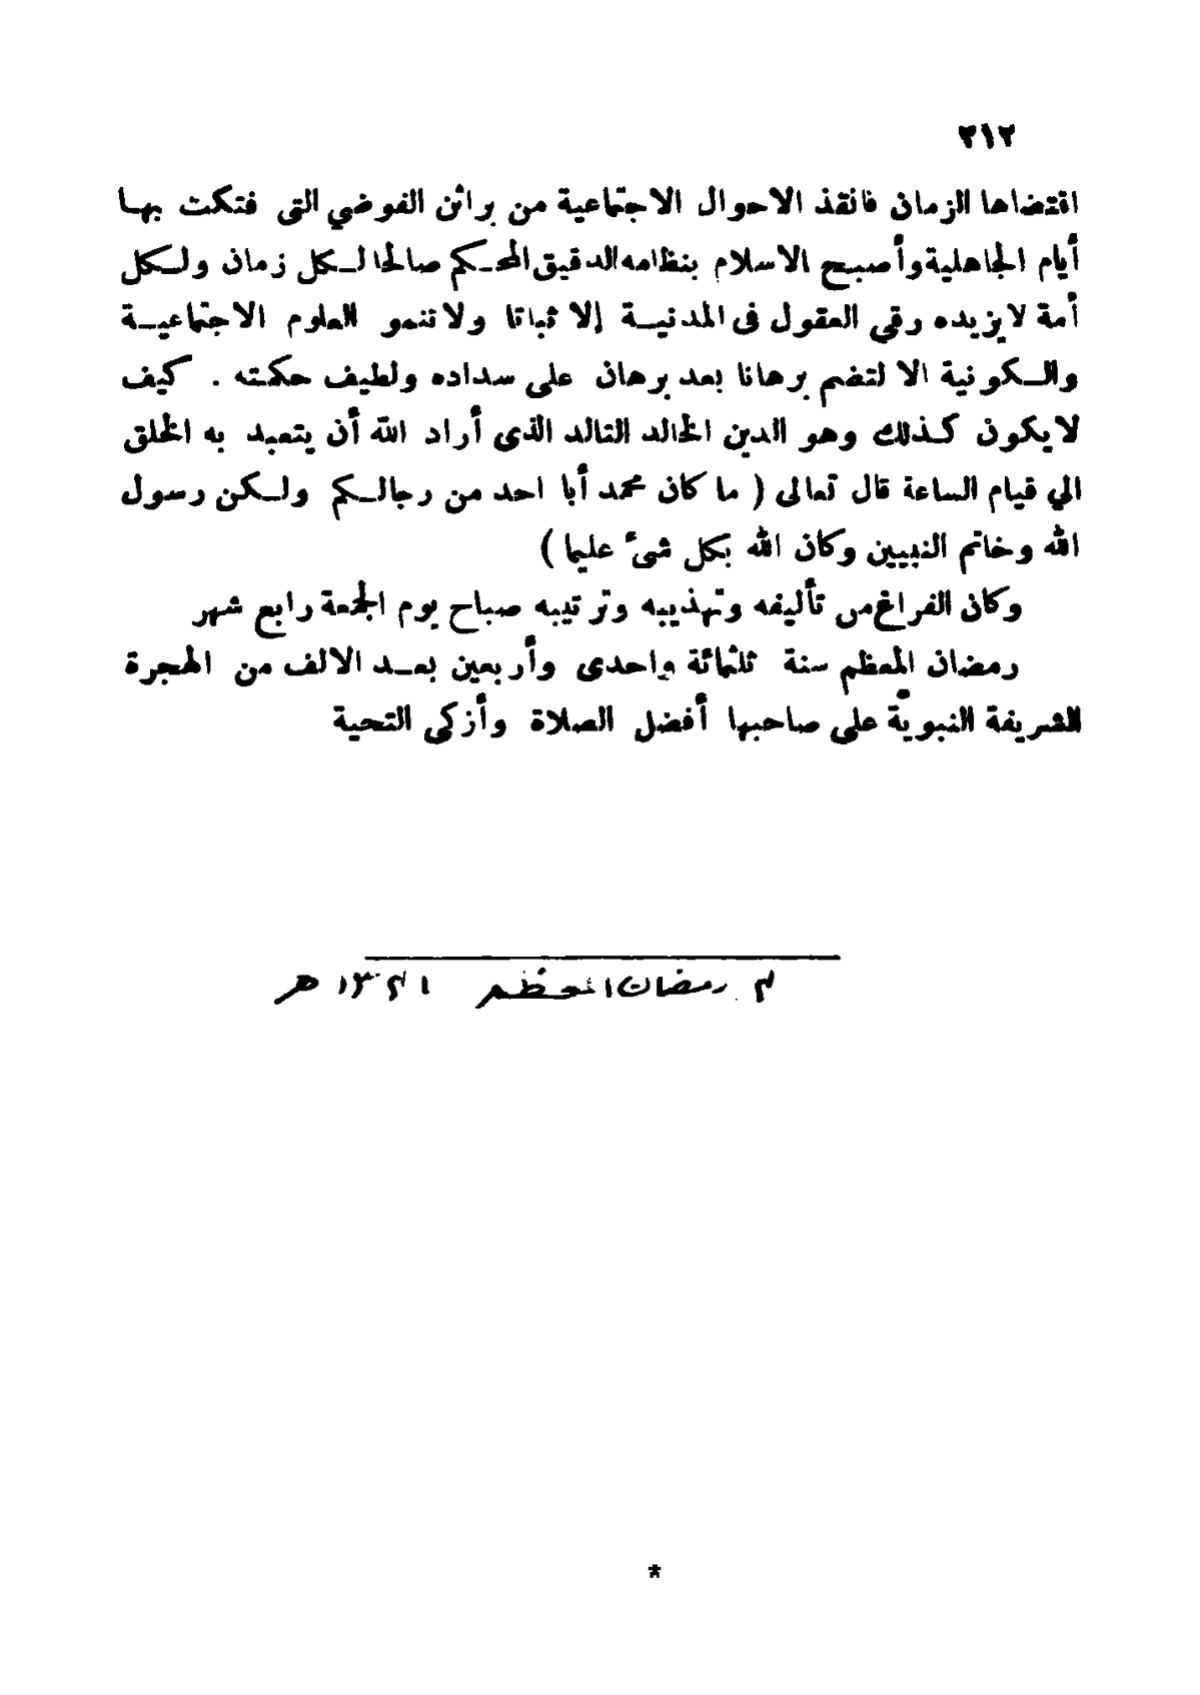 ٣١٢
اقتضاها الزمان فانقذ الاحوال الاجتماعية من براثن الفوضي التى فتكت بها
أيام الجاهلية وأصبح الاسلام بنظامه الدقيق المحكم صالحا لكل زمان ولكل
أمة لا يزيده رقي العقول فى المدنية إلا ثباتا ولا تنمو العلوم الاجتماعية
والكونية الا لتضم برهانا بعد برهان على سداده ولطيف حكمته . كيف
لا يكون كذلك وهو الدين الخالد التالد الذى أراد الله أن يتعبد به الخلق
الي قيام الساعة قال تعالى ( ما كان محمد أبا احد من رجالكم ولكن رسول
الله وخاتم النبيين وكان الله بكل شىء عليما )
وكان الفراغ من تأليفه وتهذيبه وترتيبه صباح يوم الجمعة رابع شهر
رمضان المعظم سنة ثلثمائة واحدى وأربعين بعد الالف من الهجرة
الشريفة النبوية على صاحبها أفضل الصلاة وأزكى التحية
رمضان المعظم ١٣٤١ هـ
*